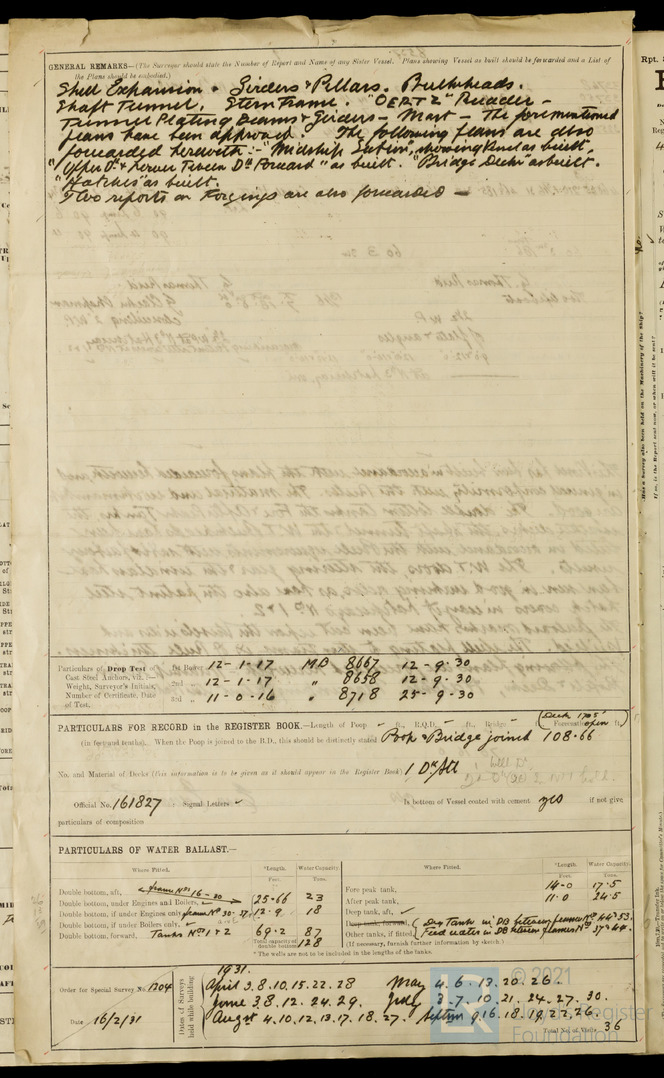 GENERAL REMARKS—(The Surveyor should state the Number of Report and Name of any Sister Vessel. Plans showing Vessel as built should be forwarded and a List of
the Plans should be embodied.)
Shell Expansion + Girders & Pillars. Bulkheads.
Shaft Tunnel, Sternframe. "OERTZ" Rudder —
Tunnel Plating Beams & Girders — Mast — The forementioned
plans have been approved. The following plans are also
forwarded herewith :- "Midship Section", showing Keel as built,
"Upper Dk & Lower Tween Dk Forward" as built. "Bridge Deck" as built.
"Hatches" as built.
Two reports on Forgings are also forwarded —
Particulars of Drop Test of
Cast Steel Anchors, viz.:—
Weight, Surveyor's Initials,
Number of Certificate, Date
of Test.
1st Bower 12-1-17 MB 8667 12-9-30
2nd " 12-1-17 " 8658 12-9-30
3rd " 11-0-16 " 8718 25-9-30
PARTICULARS FOR RECORD in the REGISTER BOOK.—Length of Poop ft., R.Q.D. ft., Bridge Forecastle ft.
open
(in feet and tenths). When the Poop is joined to the B.D., this should be distinctly stated Poop & Bridge joined 108.66
No. and Material of Decks (this information is to be given as it should appear in the Register Book) 1 Dk Stl
Official No. 161827 Signal Letters Is bottom of Vessel coated with cement yes if not give
particulars of composition
PARTICULARS OF WATER BALLAST.—
Where Fitted. *Length. Water Capacity. Where Fitted. *Length. Water Capacity.
Feet. Tons. Feet. Tons.
Double bottom, aft, frame Nos 16-30
Double bottom, under Engines and Boilers, 25.66 23
Double bottom, if under Engines only, frame No 30-37 12.9 18
Double bottom, if under Boilers only,
Double bottom, forward, Tanks No 1 & 2 69.2 87
Total capacity of double bottom 128
Fore peak tank, 14.0 17.5
After peak tank, 11.0 24.5
Deep tank, aft,
Deep tank, forward, (Dry Tank in DB between frames No 44-53.
Other tanks, if fitted, (Feed water in DB between frames No 37-44.
(If necessary, furnish further information by sketch.)
* The wells are not to be included in the lengths of the tanks.
Order for Special Survey No. 1204
Date 16/2/31
Dates of Surveys held while building
1931.
April 3.8.10.15.22.28 May 4.6.13.20.26.
June 3.8.12.24.29. July 3.7.10.21.24.27.30.
August 4.10.12.13.17.18.27. Septem 9.16.18.19.22.26.
Total No. of Visits 36
© 2021
Lloyd's Register
Foundation